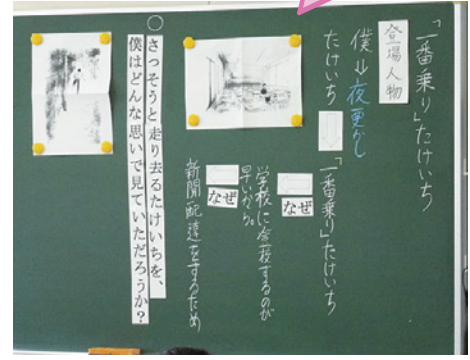 「一番乗り」たけいち
登場人物
僕⇓夜更かし
たけいち
「一番乗り」たけいち
なぜ
学校に登校するのが
早いから。
なぜ
新聞配達をするため
○さっそうと走り去るたけいちを、
僕はどんな思いで見ていただろうか？